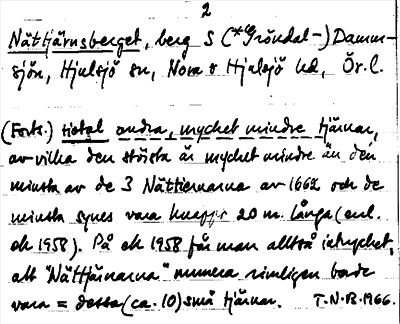 2
Nättjärnsberget, berg S (*Gröndal-) Damm-
sjön, Hjulsjö sn, Nora o Hjulsjö hd, Ör. l.
(Forts.) tiotal andra, mycket mindre tjärnar,
av vilka den största är mycket mindre än den
minsta av de 3 Nättiernarna av 1662 och de
minsta synes vara knappt 20 m. långa (enl.
ek 1958). På ek 1958 får man alltså intrycket,
att "Nättjärnarna" numera rimligen borde
vara = dessa (ca. 10) små tjärnar. T.N.B. 1966.